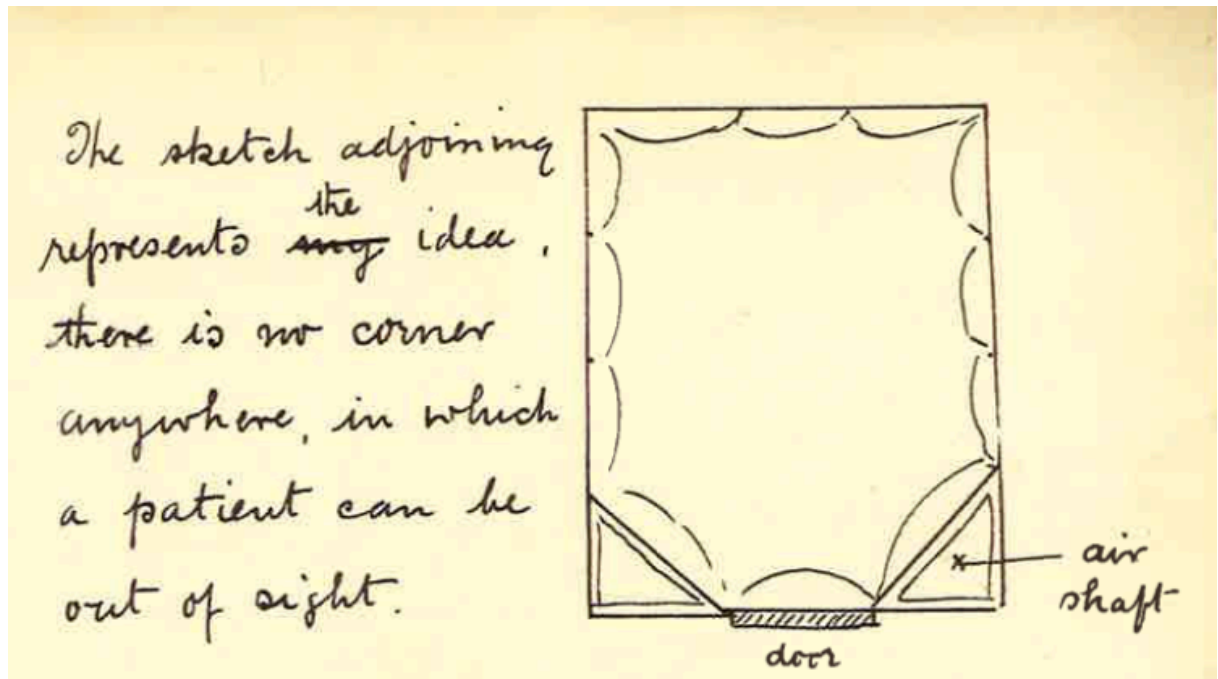 The sketch adjoining
the
represents my idea,
there is no corner
anywhere, in which
a patient can be
out of sight.
air
shaft
door